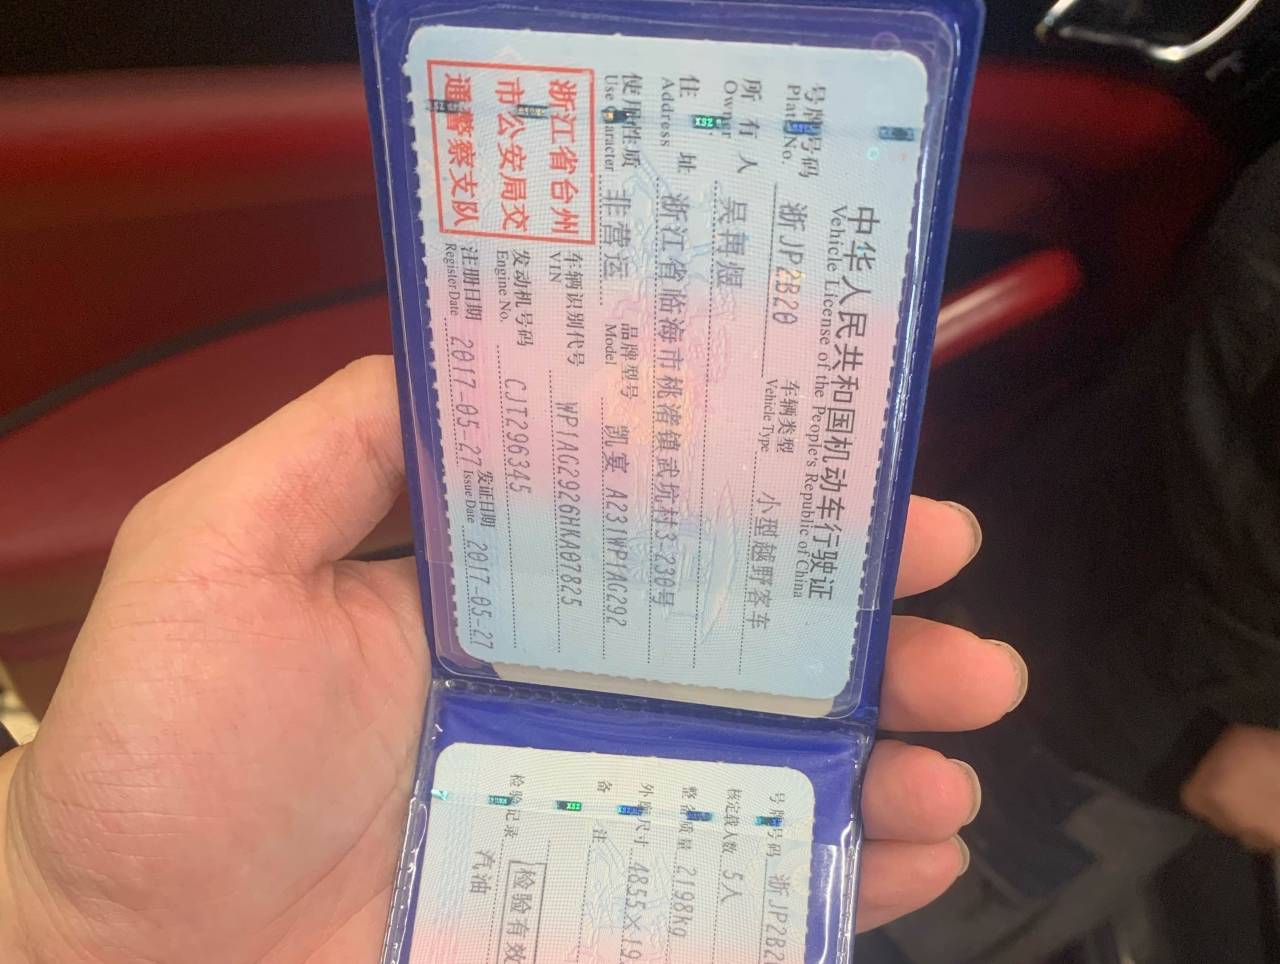 中华人民共和国机动车行驶证
Vehicle License of the People's Republic of China
号牌号码
Plate No.
浙JP2B20
车辆类型
Vehicle Type
小型越野客车
所有人
Owner
吴冉煜
住址
Address
浙江省临海市桃渚镇武坑村3-230号
使用性质
Use Character
非营运
品牌型号
Model
凯宴 A231WP1AG292
浙江省台州
市公安局交
通警察支队
车辆识别代号
VIN
WP1AG2926HKA07825
发动机号码
Engine No.
CJT296345
注册日期
Register Date
2017-05-27
发证日期
Issue Date
2017-05-27
号牌号码
浙JP2B2
核定载人数
5人
整备质量
2198kg
外廓尺寸
4855×19
备注
检验有效
检验记录
汽油